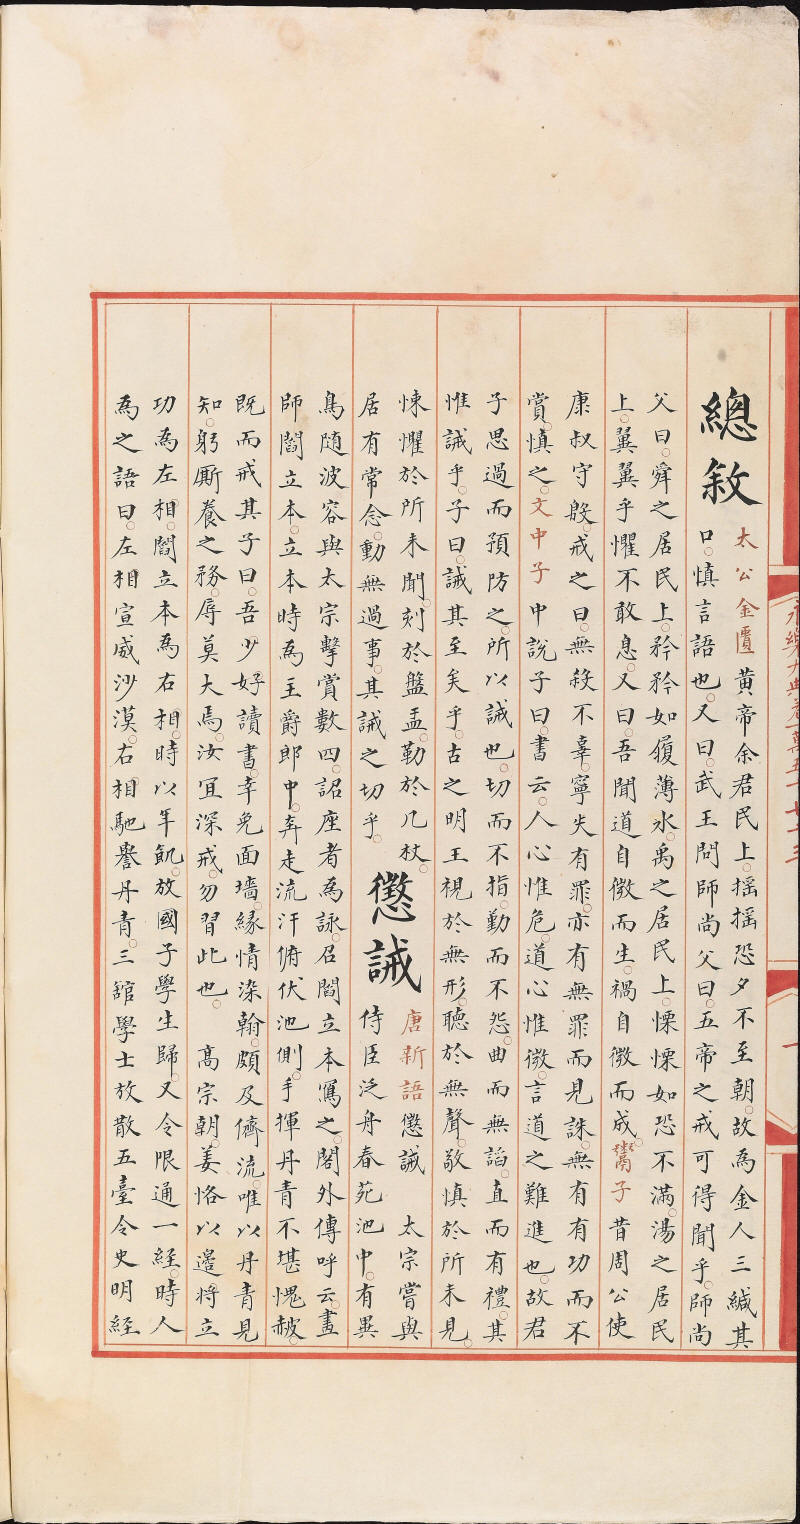 永樂大典卷一萬五千七十三
一
總敘
太公金匱黄帝余君民上。揺揺恐夕不至朝。故為金人三緘其
口。慎言語也。又曰。武王問師尚父曰。五帝之戒可得聞乎。師尚
父曰。舜之居民上。矜矜如履薄氷。禹之居民上。慄慄如恐不滿。湯之居民
上。翼翼乎懼不敢息。又曰。吾聞道自微而生。禍自微而成。鬻子昔周公使
康叔守殷。戒之曰。無殺不辜。寧失有罪。亦有無罪而見誅。無有有功而不
賞。慎之。文中子中說子曰。書云。人心惟危。道心惟微。言道之難進也。故君
子思過而預防之。所以誡也。切而不指。勤而不怨。曲而無謟。直而有禮。其
惟誡乎。子曰。誡其至矣乎。古之明王視於無形。聽於無聲。敬慎於所未見。
悚懼於所未聞。刻於盤盂。勒於几杖。
居有常念。動無過事。其誡之切乎。
懲誡
唐新語懲誡 太宗嘗與
侍臣泛舟春苑池中。有異
鳥随波容與太宗擊賞數四。詔座者為詠。召閻立本寫之。閣外傳呼云。畫
師閻立本。立本時為主爵郎中。奔走流汗俯伏池側。手揮丹青不堪愧赧。
既而戒其子曰。吾少好讀書。幸免面墻。緣情染翰。頗及儕流。唯以丹青見
知。躬厮養之務。辱莫大焉。汝宜深戒。勿習此也。 高宗朝。姜恪以邉将立
功為左相。閻立本為右相。時以年飢。放國子學生歸。又令限通一經。時人
為之語曰。左相宣威沙漠。右相馳譽丹青。三舘學士放散五臺令史明經